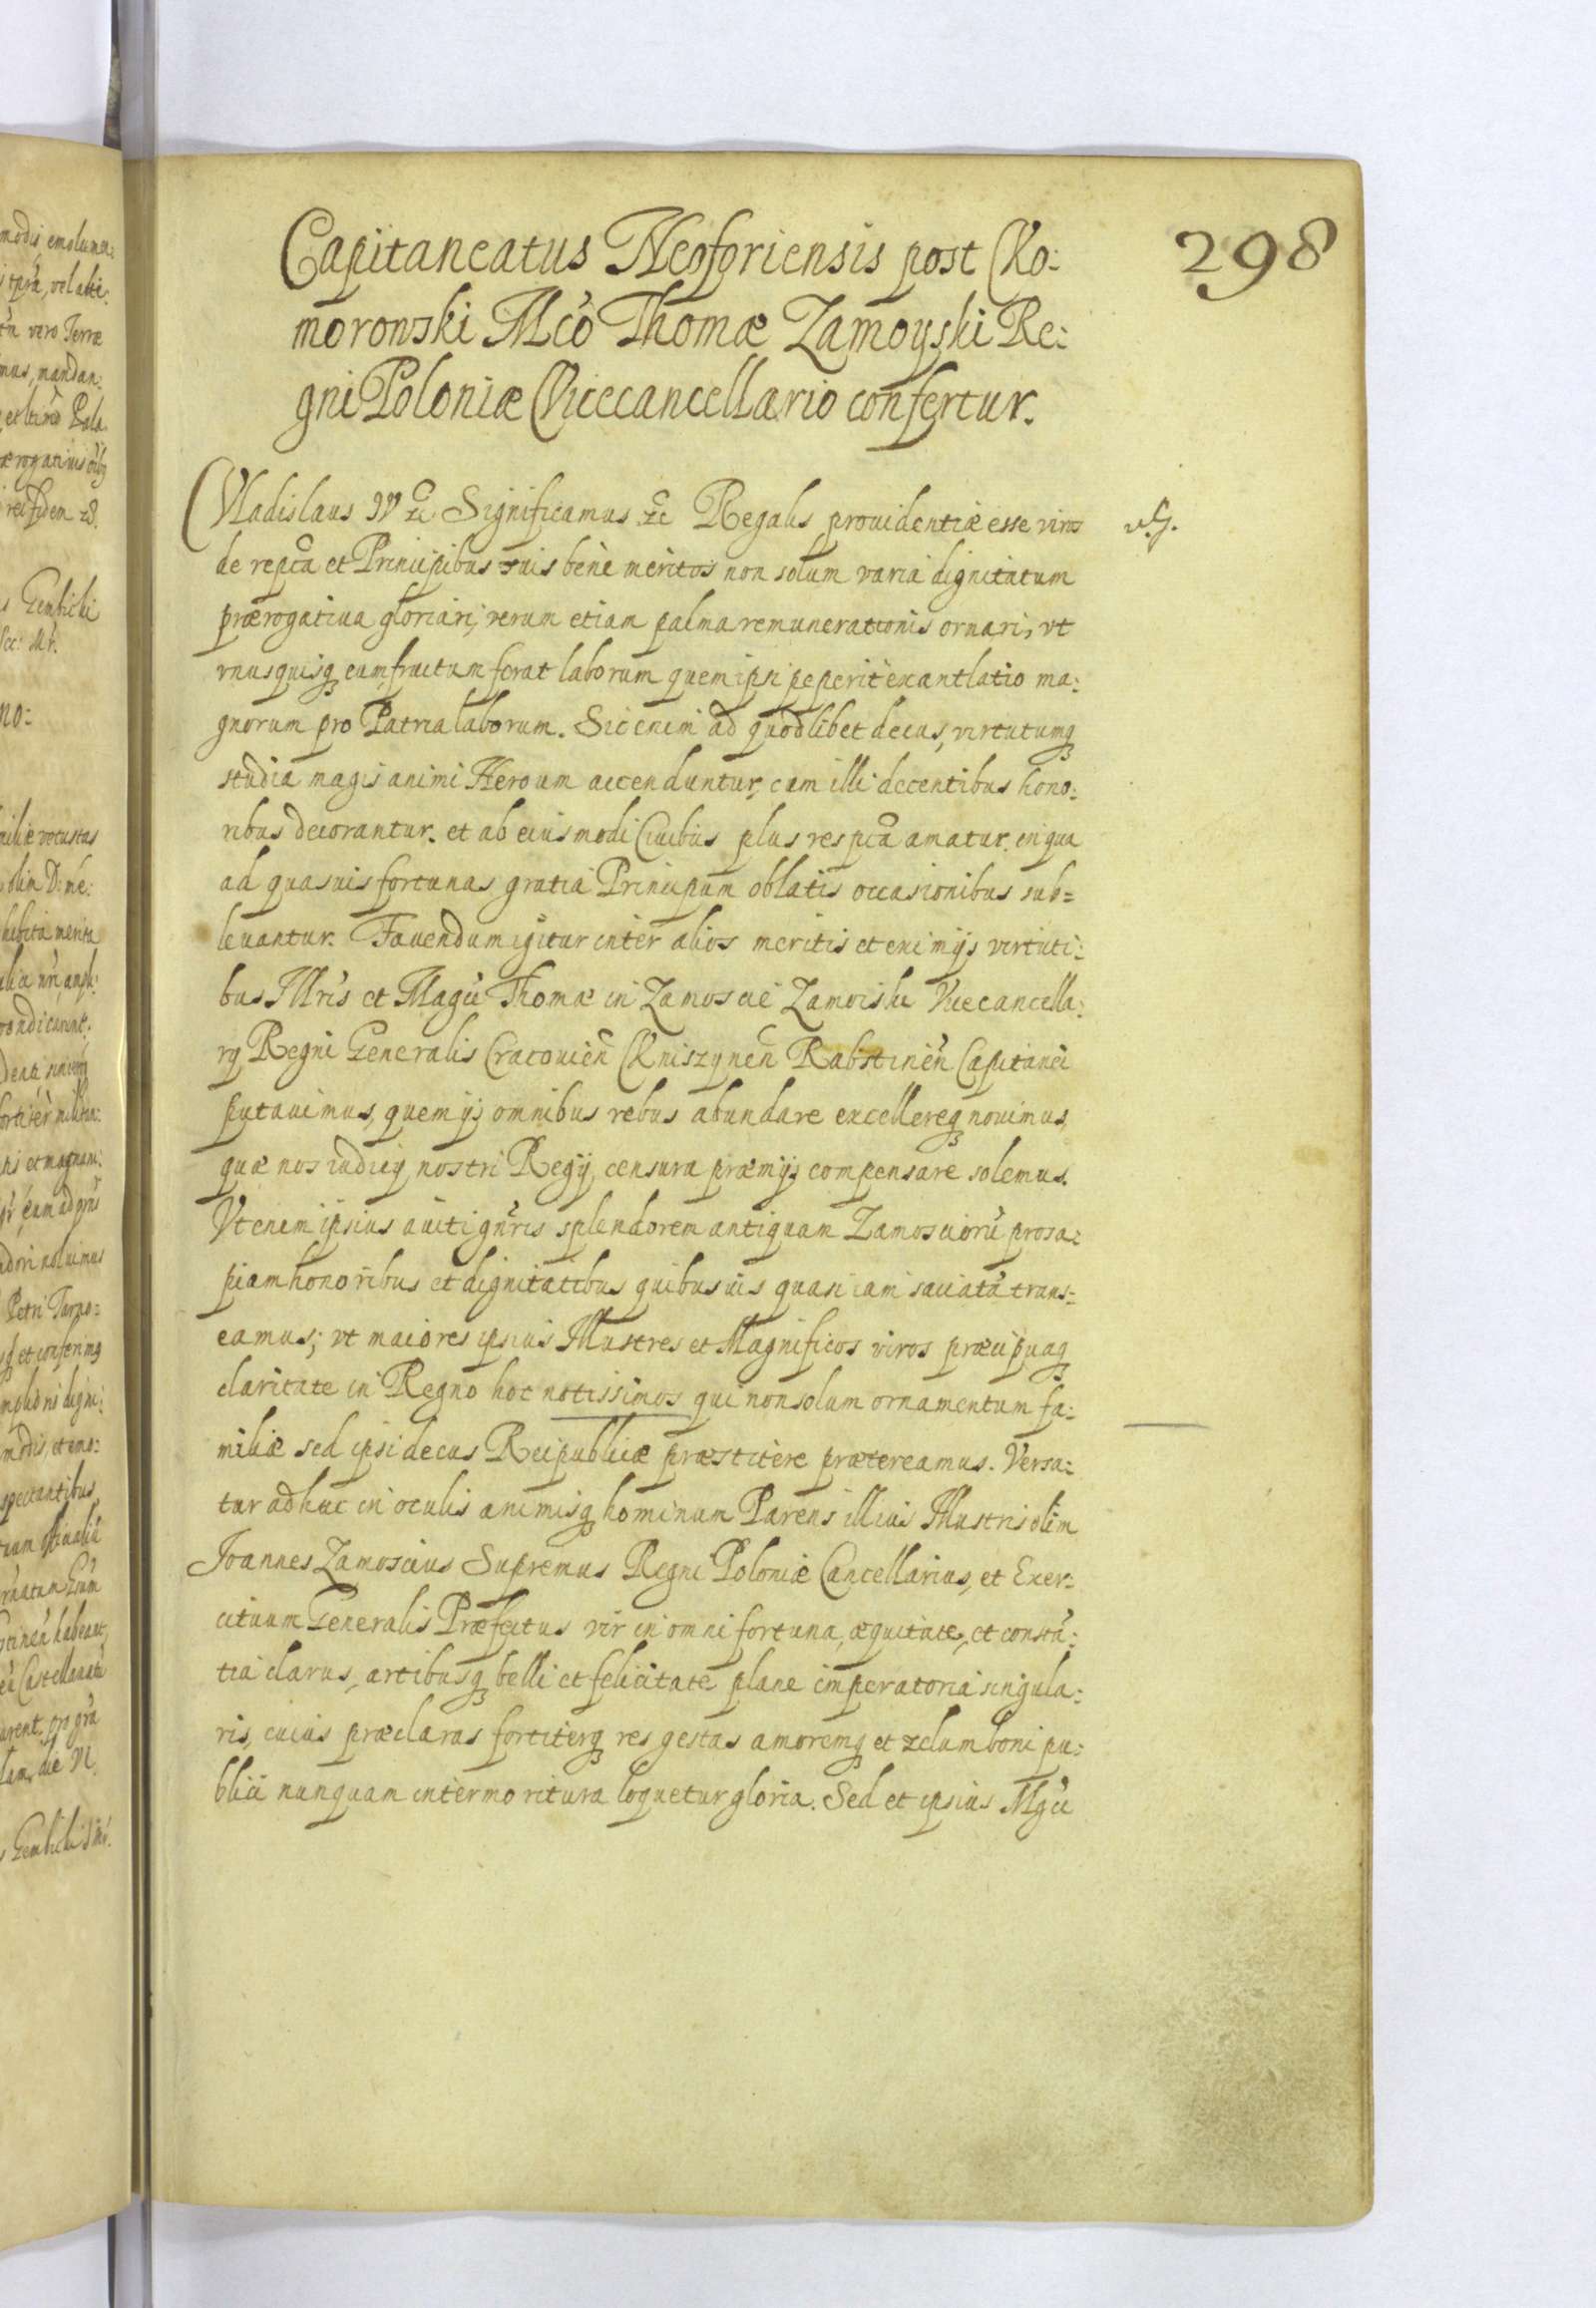 298
Capitaneatus Neoforiensis post Ko:
morowski Mco Thomæ Zamoyski Re:
gni Poloniæ Vicecancellario confertur.
Vladislaus IV etc Significamus etc Regalis prouidentiæ esse viros
de repca et Principibus suis bene meritos non solum varia dignitatum
prærogatiua gloriari, verum etiam palma remunerationis ornari, vt
vnusquisq eum fructum ferat laborum quem ipsi peperit exantlatio ma:
gnorum pro Patria laborum. Sic enim ad quodlibet decus, virtutumq
studia magis animi Heroum accenduntur, cum illi decentibus hono:
ribus decorantur. et ab eiusmodi Ciuibus plus respca amatur. in qua
ad quasuis fortunas gratia Principum oblatis occasionibus sub=
leuantur. Fauendum igitur inter alios meritis et eximijs virtuti:
bus Illris et Magci Thomæ in Zamoscie Zamoiski Vicecancella:
rij Regni Generalis Cracouien Kniszynen Rabstinen Capitanei
putauimus, quem ijs omnibus rebus abundare excellereq nouimus,
quæ nos iudicij nostri Regij censura præmijs compensare solemus.
Vt enim ipsius auiti gnris splendorem antiquam Zamosciorũ prosa:
piam honoribus et dignitatibus quibusuis quasi iam saciatã trans:
eamus; vt maiores ipsius Illustres et Magnificos viros præcipuaq
claritate in Regno hoc notissimos qui non solum ornamentum fa:
miliæ sed ipsi decus Reipublicæ præstitere prætereamus. Versa:
tur adhuc in oculis animisq hominum Parens illius Illustris olim
Joannes Zamoscius Supremus Regni Poloniæ Cancellarius, et Exer:
cituum Generalis Præfectus vir in omni fortuna, æquitate, et constã:
tia clarus, artibusq belli et felicitate plane imperatoria singula:
ris, cuius præclaras fortiterq res gestas amoremq et zelum boni pu:
blici nunquam intermoritura loquetur gloria. Sed et ipsius Mgci